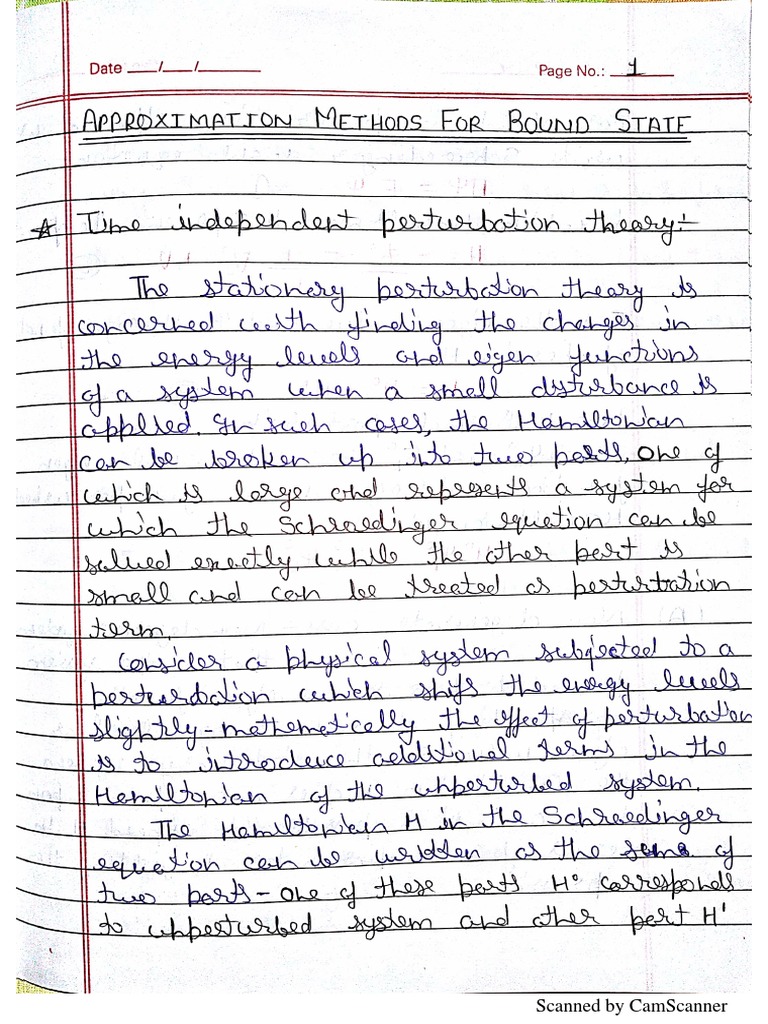 Date __/__/____ Page No.: 1
APPROXIMATION METHODS FOR BOUND STATE
☆ Time independent perturbation theory:-
The stationery perturbation theory is
concerned with finding the changes in
the energy levels and eigen functions
of a system when a small disturbance is
applied. In such cases, the Hamiltonian
can be broken up into two parts, one of
which is large and represents a system for
which the Schraedinger equation can be
salued exactly, while the other part is
small and can be treated as perturbation
term.
Consider a physical system subjected to a
perturbation which shifs the energy levels
slightly-mathemetically the effect of perturbation
is to introduce additional terms in the
Hamiltonian of the upperturbed system.
The Hamiltonian H in the Schraedinger
equation can be written as the sum of
two parts - one of these parts H° corresponds
to upperturbed system and other part H'
Scanned by CamScanner